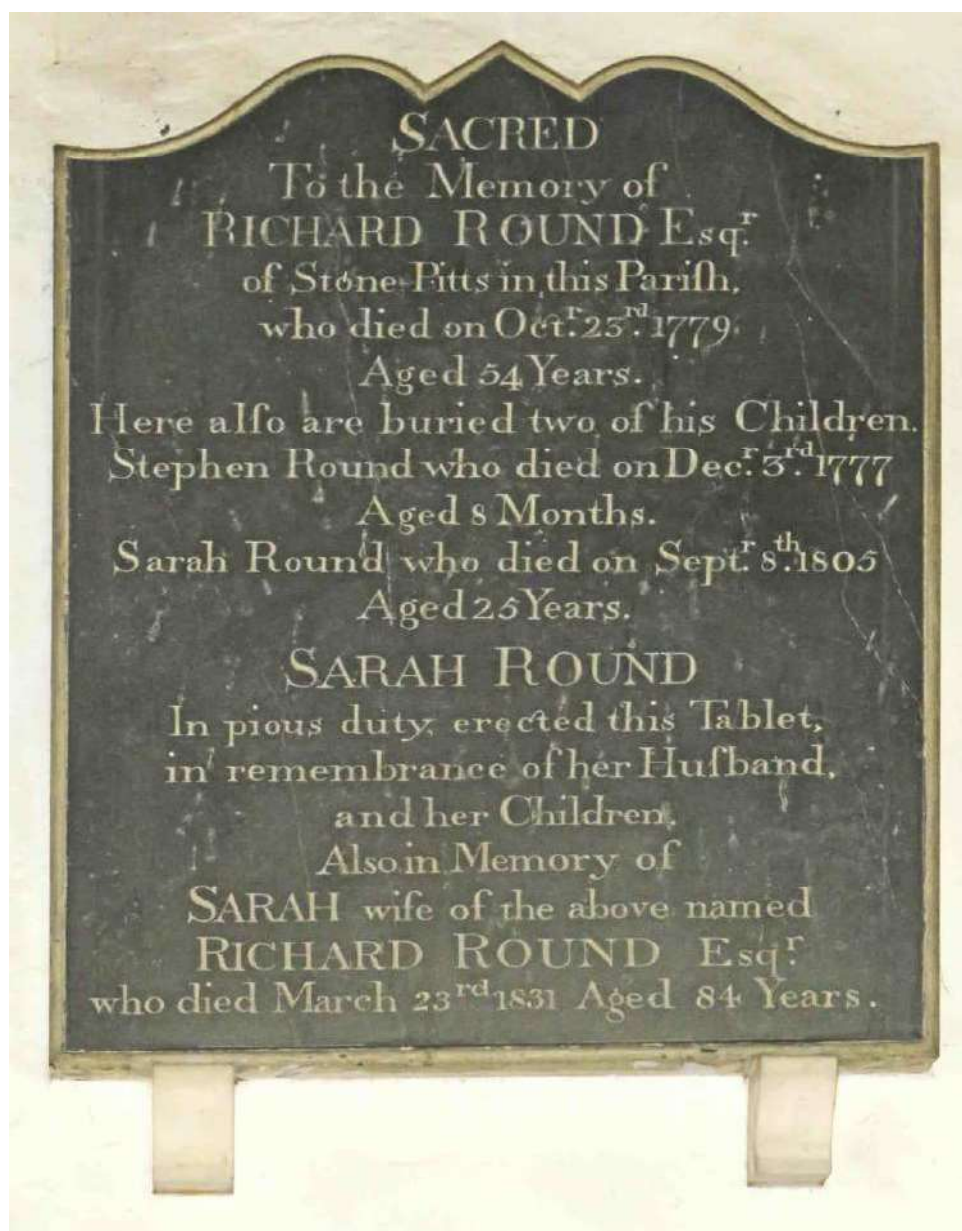 SACRED
To the Memory of
RICHARD ROUND Esqr.
of Stone-Pitts in this Pariſh,
who died on Octr. 23rd. 1779
Aged 54 Years.
Here alſo are buried two of his Children.
Stephen Round who died on Decr. 3rd. 1777
Aged 8 Months.
Sarah Round who died on Septr. 8th. 1805
Aged 25 Years.
SARAH ROUND
In pious duty, erected this Tablet,
in remembrance of her Huſband,
and her Children.
Also in Memory of
SARAH wife of the above named
RICHARD ROUND Esqr.
who died March 23rd 1831 Aged 84 Years.